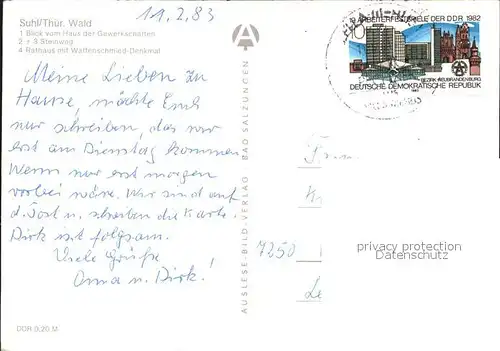 11.2.83
Suhl/Thür. Wald
1 Blick vom Haus der Gewerkschaften
2 + 3 Steinweg
4 Rathaus mit Waffenschmied-Denkmal
Meine Lieben zu
Hause, möchte Euch
nur schreiben, das wir
erst am Dienstag kommen
Wenn nur erst morgen
vorbei wäre. Wir sind auf
d. Post u. schreiben die Karte.
Dirk ist folgsam.
Viele Grüße
Oma u. Dirk!
DDR 0,20 M
AUSLESE-BILD-VERLAG BAD SALZUNGEN
19. ARBEITERFESTSPIELE DER DDR 1982
10
BEZIRK NEUBRANDENBURG
DEUTSCHE DEMOKRATISCHE REPUBLIK
7250
privacy protection
oldthing.com